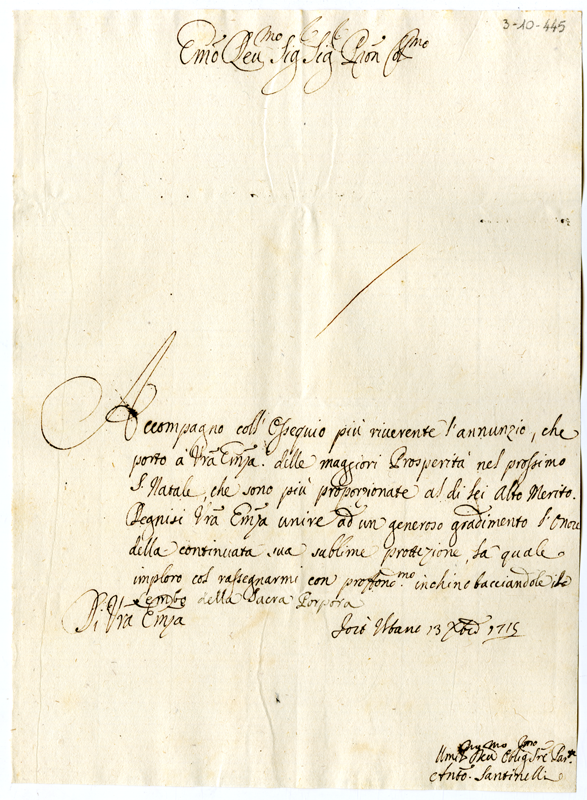 3-10-445
Emo Reu.mo Sig.r Sig.r Pron Col.mo
Accompagno coll'Ossequio più riverente l'annunzio, che
porto à Vra Emza. delle maggiori Prosperità nel prossimo
S. Natale, che sono più proporzionate al di lei Alto Merito.
Degnisi Vra Emza unire ad un generoso gradimento l'Onore
della continuata sua sublime protezione, la quale
imploro col rassegnarmi con profon.mo inchino bacciandole il
Lembo della Sacra Porpora
Di Vra Emza
Forte Urbano 13 Xbre 1715
Umil.mo Oblig.mo Ser.re
Anto. Santinelli